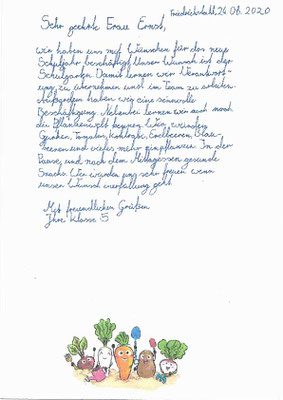 Friedrichstadt, 26.08.2020
Sehr geehrte Frau Ernst,
wir haben uns mit Wünschen für das neue
Schuljahr beschäftigt. Unser Wunsch ist der
Schulgarten. Damit lernen wir Verantwort-
ung zu übernehmen und im Team zu arbeiten.
Außerdem haben wir eine sinnvolle
Beschäftigung. Nebenbei lernen wir auch noch
die Pflanzenwelt kennen. Wir würden
Gurken, Tomaten, Erdbeeren, Blau-
beeren und vieles mehr einpflanzen. In der
Pause und nach dem Mittagessen gesunde
Snacks. Wir würden uns sehr freuen wenn
unser Wunsch in erfüllung geht.
Mit freundlichen Grüßen
Ihre Klasse 5